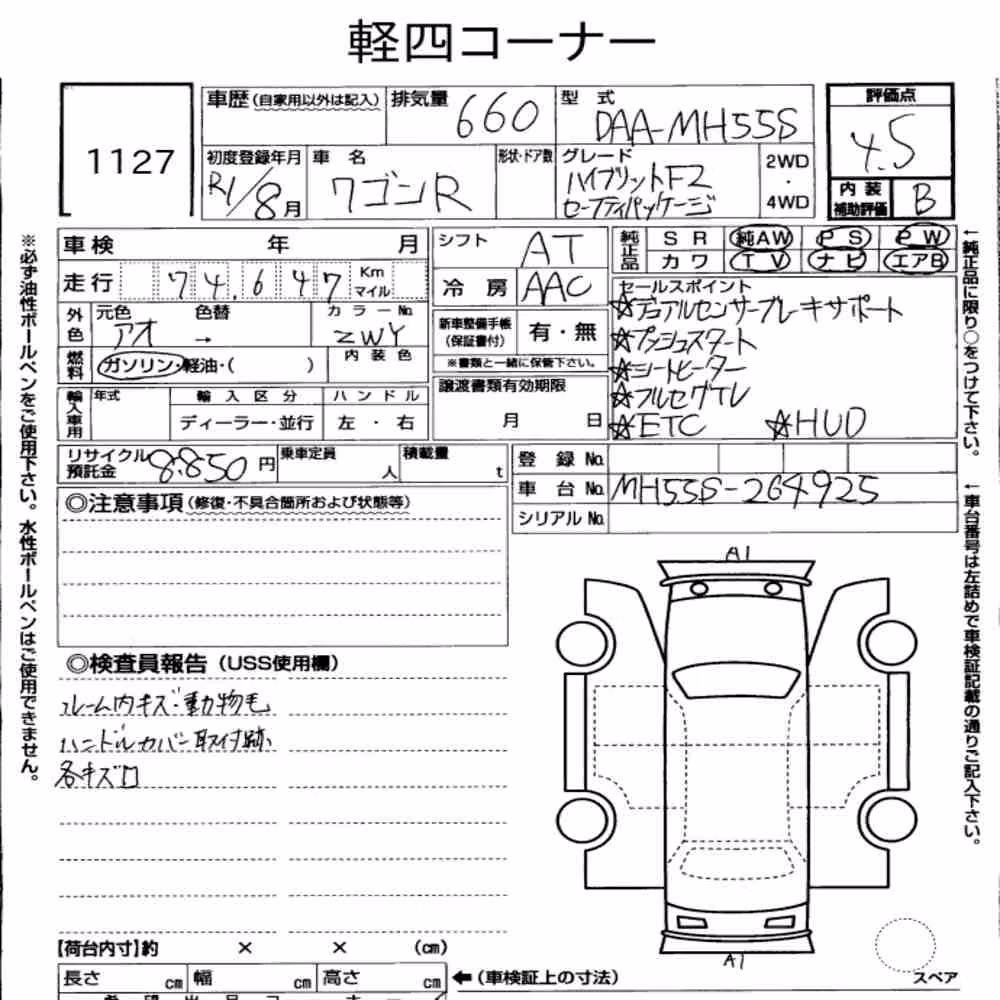 軽四コーナー
1127
車歴 (自家用以外は記入) 排気量 660 型式 DAA-MH55S 評価点 4.5
初度登録年月 R1/8月 車名 ワゴンR 形状・ドア数 グレード ハイブリットFZ セーフティパッケージ 2WD・4WD 内装補助評価 B
車検 年 月
走行 74,647 Km マイル
シフト AT
冷房 AAC
純正品 SR 純AW PS PW
カワ TV ナビ エアB
外色 元色 アオ 色替 → カラーNo. ZWY
燃料 ガソリン・軽油・( ) 内装色
新車整備手帳 (保証書付) 有・無
※書類と一緒に保管下さい。
輸入車用 年式 輸入区分 ハンドル
ディーラー・並行 左・右
譲渡書類有効期限
月 日
セールスポイント
☆デュアルセンサーブレーキサポート
☆プッシュスタート
☆シートヒーター
☆フルセグTV
☆ETC ☆HUD
リサイクル預託金 8,850円 乗車定員 人 積載量 t
登録No.
車台No. MH55S-264925
シリアルNo.
◎注意事項 (修復・不具合箇所および状態等)
◎検査員報告 (USS使用欄)
フレーム内キズ・動物毛
ハンドルカバー取付跡
各キズ凹
A1
A1
スペア
【荷台内寸】約 × × (cm)
長さ cm 幅 cm 高さ cm ←(車検証上の寸法)
※必ず油性ボールペンをご使用下さい。水性ボールペンはご使用できません。
←純正品に限り○をつけて下さい。
←車台番号は左詰めで車検証記載の通りご記入下さい。